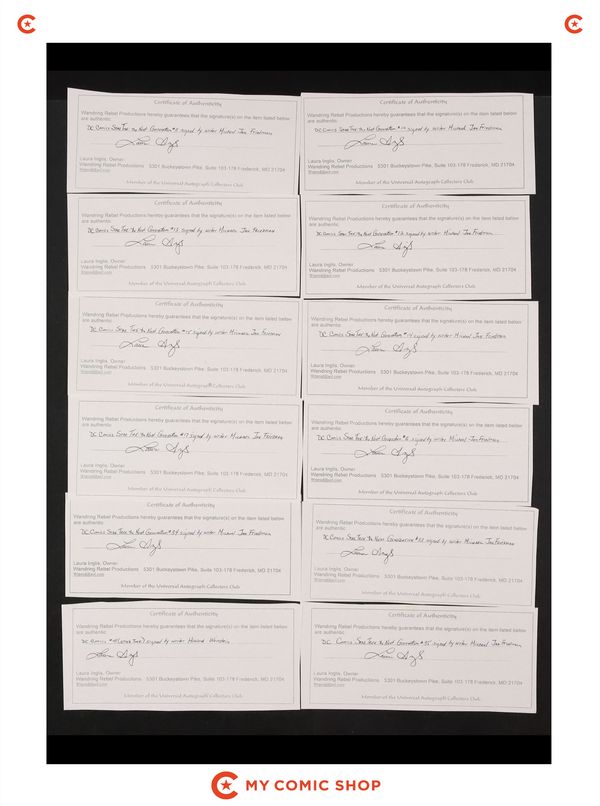 Certificate of Authenticity
Wandring Rebel Productions hereby guarantees that the signature(s) on the item listed below
are authentic:
DC Comics Star Trek the Next Generation signed by writer Michael Jan Friedman
Laura Inglis, Owner
Wandring Rebel Productions 5301 Buckeystown Pike, Suite 103-178 Frederick, MD 21704
Member of the Universal Autograph Collectors Club
Certificate of Authenticity
Wandring Rebel Productions hereby guarantees that the signature(s) on the item listed below
are authentic:
DC Comics Star Trek the Next Generation signed by writer Michael Jan Friedman
Laura Inglis, Owner
Wandring Rebel Productions 5301 Buckeystown Pike, Suite 103-178 Frederick, MD 21704
Member of the Universal Autograph Collectors Club
Certificate of Authenticity
Wandring Rebel Productions hereby guarantees that the signature(s) on the item listed below
are authentic:
DC Comics Star Trek the Next Generation #13 signed by writer Michael Jan Friedman
Laura Inglis, Owner
Wandring Rebel Productions 5301 Buckeystown Pike, Suite 103-178 Frederick, MD 21704
Member of the Universal Autograph Collectors Club
Certificate of Authenticity
Wandring Rebel Productions hereby guarantees that the signature(s) on the item listed below
are authentic:
DC Comics Star Trek the Next Generation #12 signed by writer Michael Jan Friedman
Laura Inglis, Owner
Wandring Rebel Productions 5301 Buckeystown Pike, Suite 103-178 Frederick, MD 21704
Member of the Universal Autograph Collectors Club
Certificate of Authenticity
Wandring Rebel Productions hereby guarantees that the signature(s) on the item listed below
are authentic:
DC Comics Star Trek the Next Generation #15 signed by writer Michael Jan Friedman
Laura Inglis, Owner
Wandring Rebel Productions 5301 Buckeystown Pike, Suite 103-178 Frederick, MD 21704
Member of the Universal Autograph Collectors Club
Certificate of Authenticity
Wandring Rebel Productions hereby guarantees that the signature(s) on the item listed below
are authentic:
DC Comics Star Trek the Next Generation #14 signed by writer Michael Jan Friedman
Laura Inglis, Owner
Wandring Rebel Productions 5301 Buckeystown Pike, Suite 103-178 Frederick, MD 21704
Member of the Universal Autograph Collectors Club
Certificate of Authenticity
Wandring Rebel Productions hereby guarantees that the signature(s) on the item listed below
are authentic:
DC Comics Star Trek the Next Generation #17 signed by writer Michael Jan Friedman
Laura Inglis, Owner
Wandring Rebel Productions 5301 Buckeystown Pike, Suite 103-178 Frederick, MD 21704
Member of the Universal Autograph Collectors Club
Certificate of Authenticity
Wandring Rebel Productions hereby guarantees that the signature(s) on the item listed below
are authentic:
DC Comics Star Trek the Next Generation signed by writer Michael Jan Friedman
Laura Inglis, Owner
Wandring Rebel Productions 5301 Buckeystown Pike, Suite 103-178 Frederick, MD 21704
Member of the Universal Autograph Collectors Club
Certificate of Authenticity
Wandring Rebel Productions hereby guarantees that the signature(s) on the item listed below
are authentic:
DC Comics Star Trek the Next Generation signed by writer Michael Jan Friedman
Laura Inglis, Owner
Wandring Rebel Productions 5301 Buckeystown Pike, Suite 103-178 Frederick, MD 21704
Member of the Universal Autograph Collectors Club
Certificate of Authenticity
Wandring Rebel Productions hereby guarantees that the signature(s) on the item listed below
are authentic:
DC Comics Star Trek the Next Generation signed by writer Michael Jan Friedman
Laura Inglis, Owner
Wandring Rebel Productions 5301 Buckeystown Pike, Suite 103-178 Frederick, MD 21704
Member of the Universal Autograph Collectors Club
Certificate of Authenticity
Wandring Rebel Productions hereby guarantees that the signature(s) on the item listed below
are authentic:
DC Comics (Star Trek) signed by writer Howard Weinstein
Laura Inglis, Owner
Wandring Rebel Productions 5301 Buckeystown Pike, Suite 103-178 Frederick, MD 21704
Member of the Universal Autograph Collectors Club
Certificate of Authenticity
Wandring Rebel Productions hereby guarantees that the signature(s) on the item listed below
are authentic:
DC Comics Star Trek the Next Generation signed by writer Michael Jan Friedman
Laura Inglis, Owner
Wandring Rebel Productions 5301 Buckeystown Pike, Suite 103-178 Frederick, MD 21704
Member of the Universal Autograph Collectors Club
MY COMIC SHOP